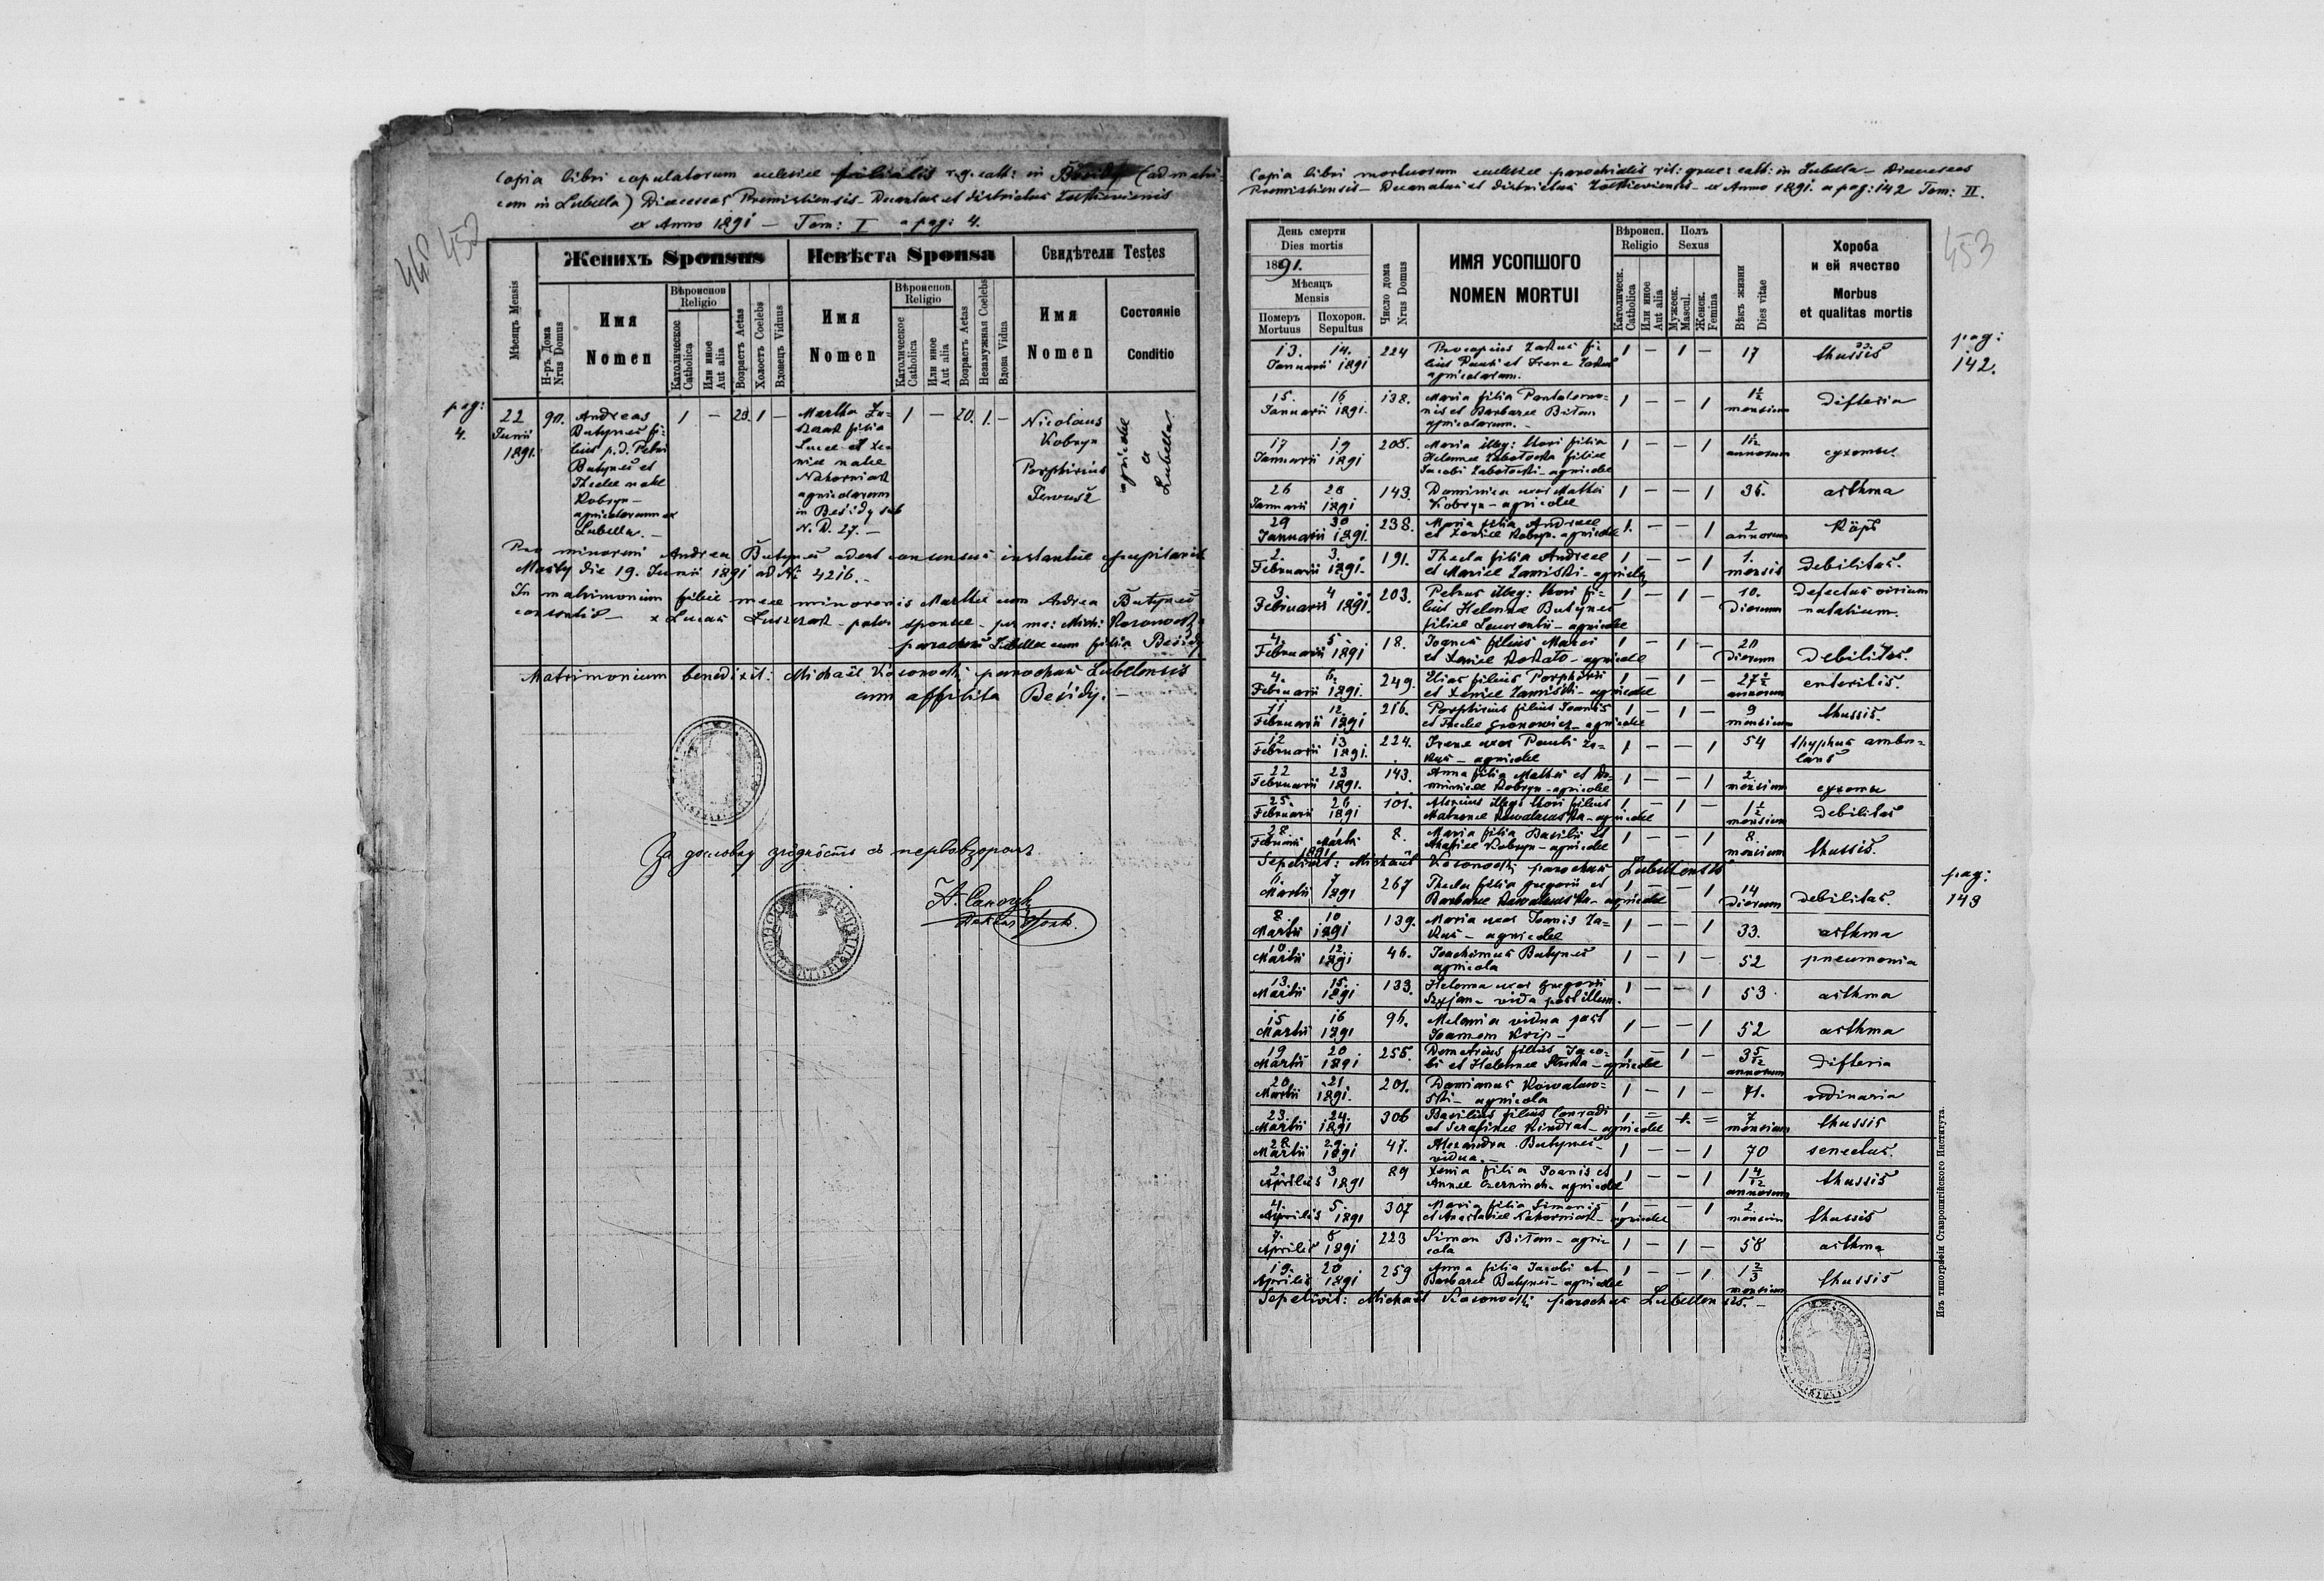 Copia libri copulatorum ecclesiae filialis r.g. cath: in Besidy (ad matri-
cem in Lubella) Dioeceseos Premisliensis – Decanatus et districtus Zolkieviensis
ex Anno 1891 – Tom: I a pag: 4.
452
Женихъ Sponsus
Невѣста Sponsa
Свидѣтели Testes
Мѣсяцъ Mensis
Н-ръ Дома
Nrus Domus
Имя
Nomen
Вѣроиспов
Religio
Католическое
Catholica
Или иное
Aut alia
Возрастъ Aetas
Холостъ Coelebs
Вдовецъ Viduus
Имя
Nomen
Вѣроиспов.
Religio
Католическое
Catholica
Или иное
Aut alia
Возрастъ Aetas
Незамужная Coelebs
Вдова Vidua
Имя
Nomen
Состояніе
Conditio
pag:
4.
22
Junii
1891.
90.
Andreas
Butyneć fi-
lius p.d. Petri
Butyneć et
Theclae natae
Kobryn –
agricolarum ex
Lubella. –
1 – 23. 1 –
Martha Lu-
szczak filia
Lucae et Xe-
niae natae
Nahorniak
agricolarum
in Besidy sub
N. D. 27. –
1 – 20. 1. –
Nicolaus
Kobryn
Porphirius
agricolae
ex
Lubella
Pro minoreni Andrea Butyneć adest consensus instantiae
Mosty die 19. Junii 1891 ad N: 4216. –
In matrimonium filiae meae minorenis Marthae cum Andrea Butyneć
consentio – x Lucas Luszczak – pater sponsae – per me: Mich: Kosonocki
parochus Lubellae cum filia Besidy
Matrimonium benedixit: Michaël Kosonocki parochus Lubellensis
cum affiliata Besidy. –
За дословну згôдность съ первовзоромъ
Copia libri mortuorum ecclesiae parochialis rit: graec: cath: in Lubella – Dioeceseos
Premisliensis – Decanatus et districtus Zolkieviensis – ex Anno 1891. a pag: 142 Tom: II.
453
День смерти
Dies mortis
1891.
Мѣсяцъ
Mensis
Померъ
Mortuus
Похорон.
Sepultus
Число дома
Nrus Domus
ИМЯ УСОПШОГО
NOMEN MORTUI
Вѣроисп.
Religio
Католическ.
Catholica
Или иное
Aut alia
Полъ
Sexus
Мужеск.
Mascul.
Женск.
Femina
Вѣкъ жизни
Dies vitae
Хороба
и ей ячество
Morbus
et qualitas mortis
pag:
142.
13. 14. 224 Procopius Zakus fi- 1 – 1 – 17 thussis
Januarii 1891 lius Pauli et Irenae Zakus
agricolarum.
15. 16 138. Maria filia Pantalemo- 1 – – 1 1½ difteria
Januarii 1891. nis et Barbarae Bitam mensium
agricolarum. –
17 19 208. Maria illeg: thori filia 1 – – 1 1½ сухоты.
Januarii 1891 Helenae Zabołocka filiae annorum
Jacobi Zabołocki – agricolae
26 28 143. Dominica uxor Mathei 1 – – 1 36. asthma
Januarii 1891 Kobryn – agricolae
29 30 238. Maria filia Andreae 1. – – 1 2 Köps
Januarii 1891. et Xeniae Kobryn – agricolae annorum
2. 3. 191. Thecla filia Andreae 1 – – 1 1. debilitas.
Februarii 1891. et Mariae Zamiski – agricolae mensis
3. 4. 203. Petrus illeg: thori fi- 1 – 1 – 10. defectus virium
Februarii 1891. lius Helenae Butyneć dierum natalium.
filiae Laurentii – agricolae
4. 5. 18. Joanes filius Marci 1 – 1 – 20 debilitas.
Februarii 1891 et Xeniae Kokato – agricolae dierum
4. 6. 249. Elias filius Porphirii 1 – 1 – enteritis.
Februarii 1891. et Xeniae Zamiski – agricolae annorum
11 12 216. Porphirius filius Joanis 1 – 1 – 9 thussis.
Februarii 1891 et Theclae Gronowicz – agricolae mensium
12 13 224. Irena uxor Pauli Za- 1 – – 1 54 thyphus ambu-
Februarii 1891. kus – agricolae lans
22 23 143. Anna filia Mathei et Do- 1 – – 1 2 сухоты
Februarii 1891. minicae Kobryn – agricolae mensium
25. 26 101. Alexius illeg: thori filius 1 – 1 – 1½ debilitas
Februarii 1891 Matronae Kowalewska – agricolae mensium
28. 1 8. Maria filia Basilii et 1 – – 1 8. thussis.
Februarii Martii 1891 Anastasiae Kobryn – agricolae mensium
Sepelivit: Michaël Kosonocki parochus Lubellensis
pag:
143
6. 7 267 Thecla filia Gregorii et 1 – – 1 14 debilitas.
Martii 1891 Barbarae Kowalewska – agricolae dierum
8. 10 139. Maria uxor Joanis Za- 1 – – 1 33. asthma
Martii 1891 kus – agricolae
10. 12 46. Joachimus Butyneć 1 – 1 – 52 pneumonia
Martii 1891 agricola
13. 15. 133. Helena uxor Gregorii 1 – – 1 53. asthma
Martii 1891 vidua post illum.
15 16 96. Melania vidua post 1 – – 1 52 asthma
Martii 1891 Joannem Krip –
19 20 255. Demetrius filius Jaco- 1 – 1 – 3 5/12 difteria
Martii 1891 bi et Helenae – agricolae annorum
20. 21. 201. Damianus Kowalew- 1 – 1 – 71. ordinaria
Martii 1891. ski – agricola
23. 24. 306 Basilius filius Conradi 1 – 1 – 7 thussis
Martii 1891 et Serafinae Kindrat – agricolae mensium
28 29. 47. Alexandra Butyneć 1 – – 1 70 senectus.
Martii 1891 vidua. –
2. 3 89 Xenia filia Joanis et 1 – – 1 1 4/12 thussis
Aprilis 1891 Annae – agricolae annorum
4. 5. 307 Maria filia Simonis 1 – – 1 2 thussis
Aprilis 1891 et Anastasiae Nahorniak – agricolae mensium
7. 8 223 Simon Bitam – agri- 1 – 1 – 58 asthma
Aprilis 1891 cola
19. 20 259 Anna filia Jacobi et 1 – – 1. 1⅔ thussis
Aprilis 1891 Barbarae Butyneć – agricolae mensium
Sepelivit: Michaël Kosonocki parochus Lubellensis. –
Изъ типографіи Ставропигійского Института.